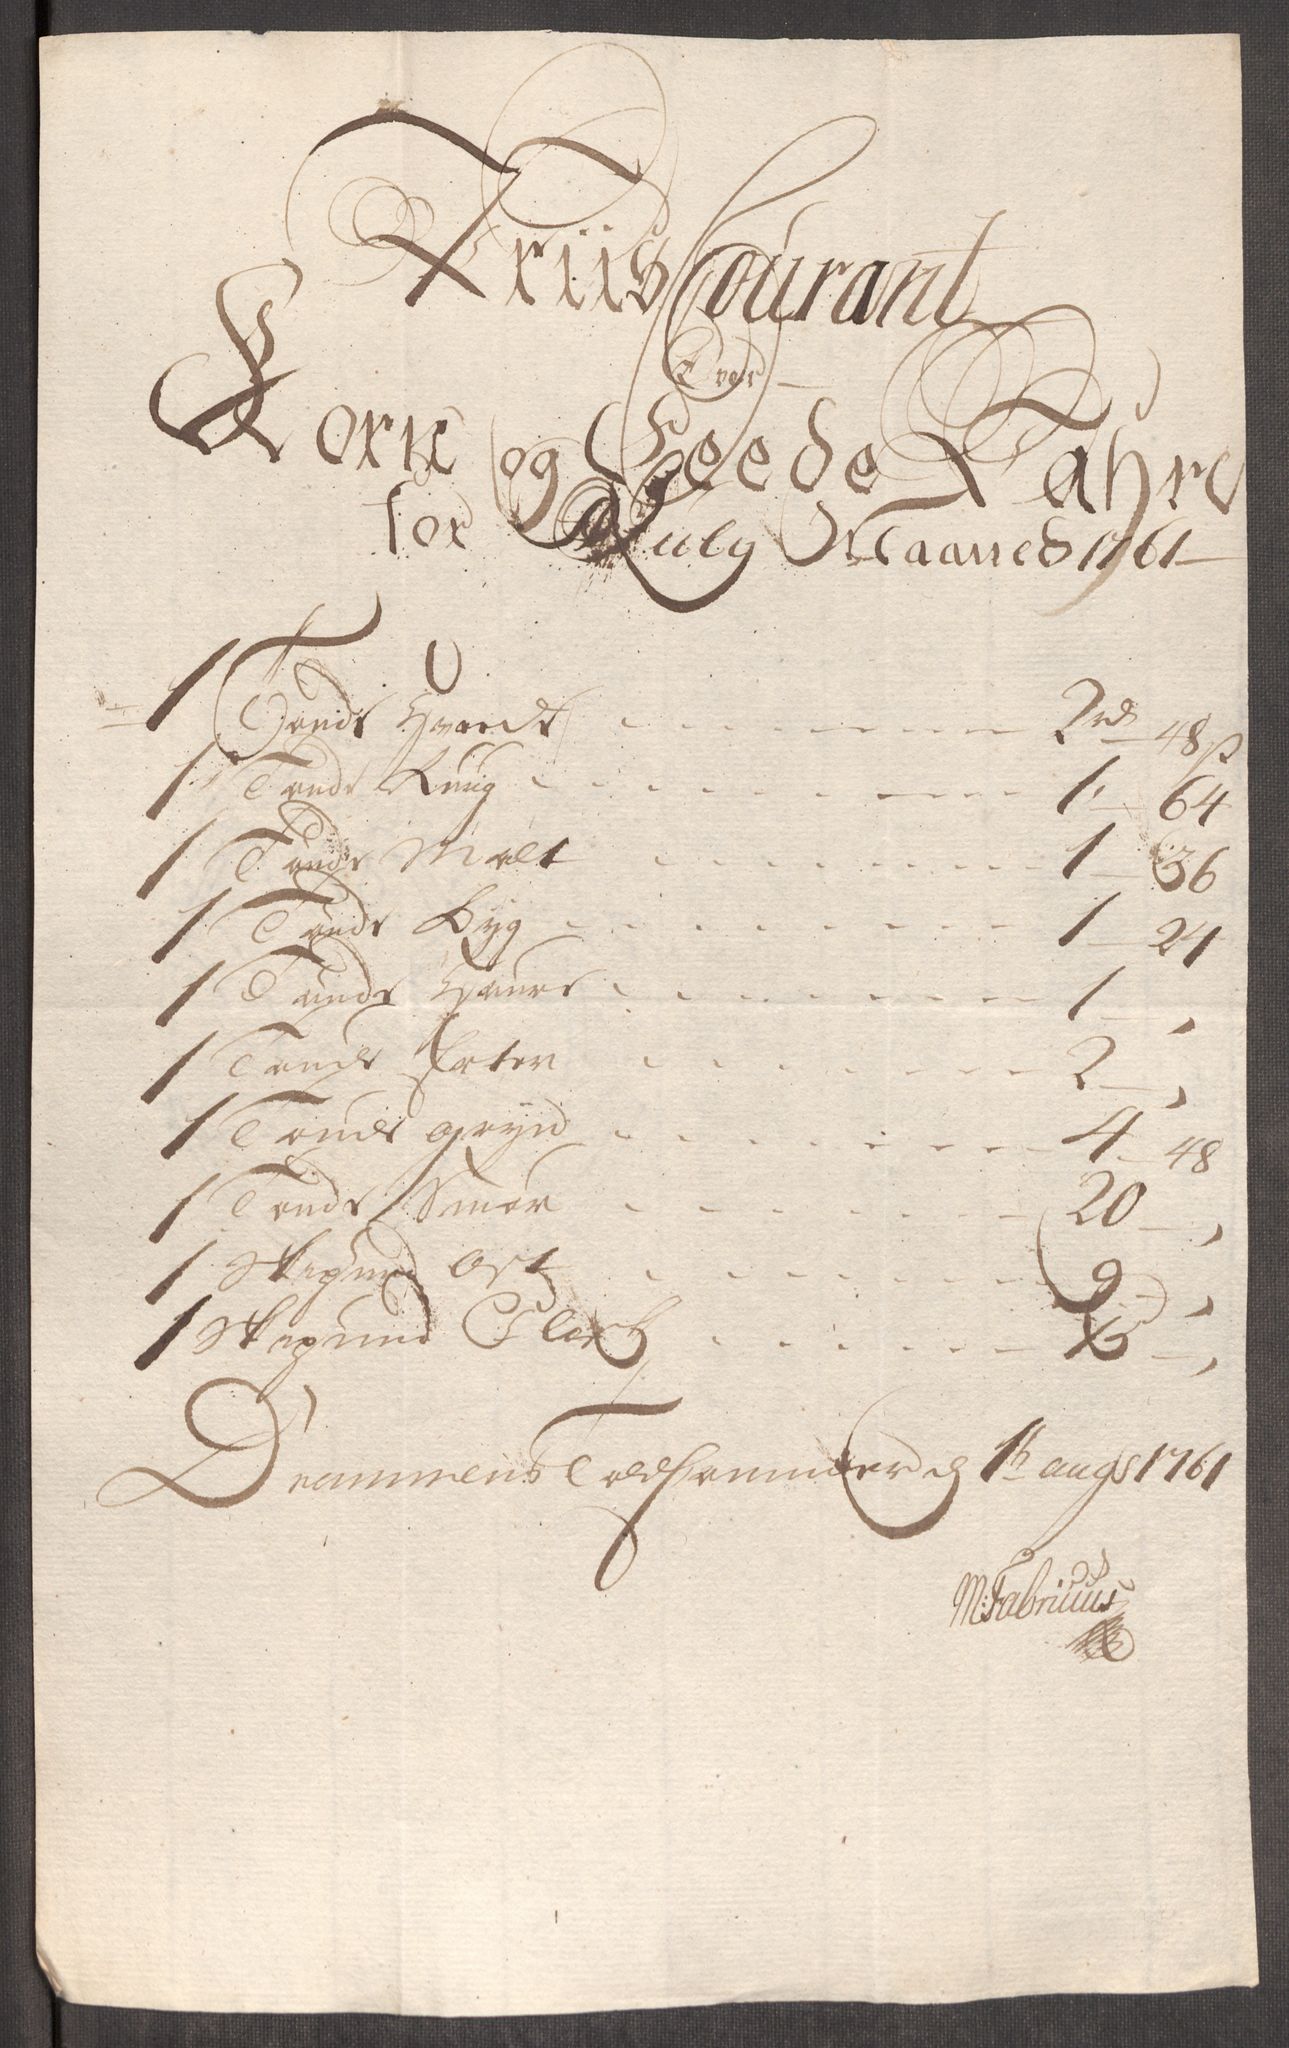 Priis Courant
Over
Korn og Feede Vahre
for July Maaned 1761
1 Tønde Hvede 2 rd 48 ß
1 Tønde Ruug 1 64
1 Tønde Malt 1 36
1 Tønde Byg 1 24
1 Tønde Haure 1 "
1 Tønde Erter 2 "
1 Tønde gryn 4 48
1 Tønde Smør 20 "
1 Skippund Ost 9 "
1 Skippund Flesk "
Drammens Toldkammer d 1t augs 1761
M: Fabricius